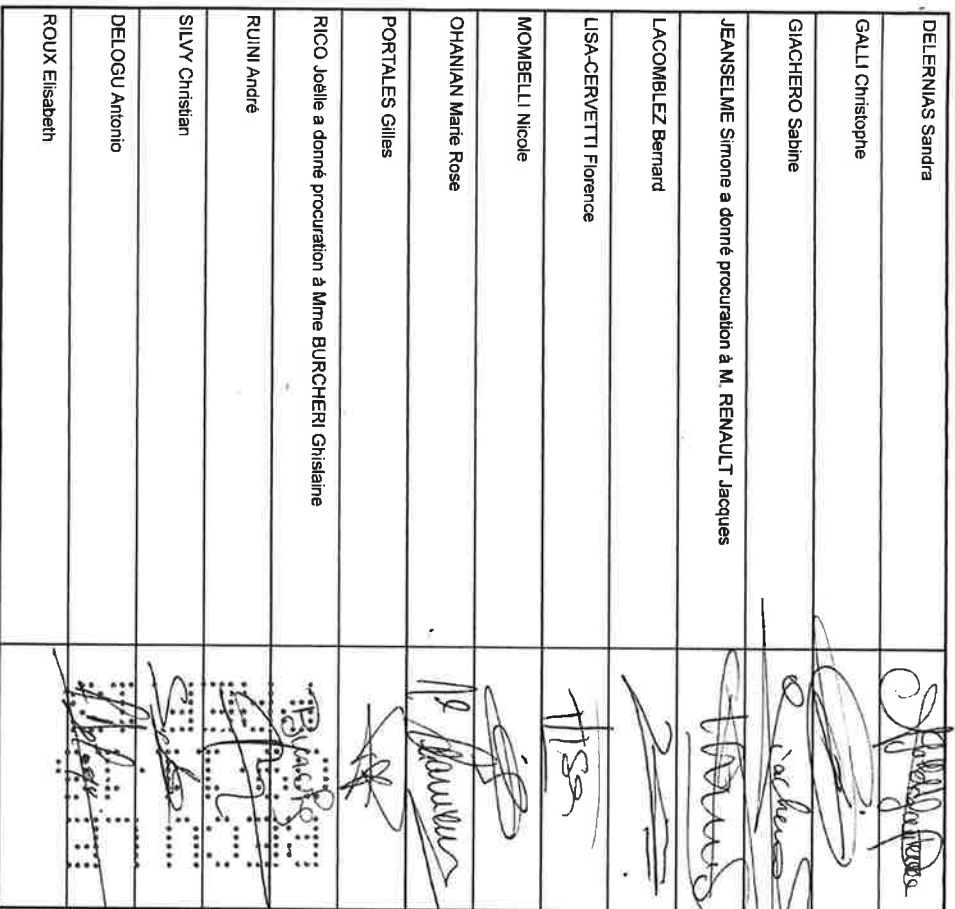 DELERNIAS Sandra
GALLI Christophe
GIACHERO Sabine
JEANSELME Simone a donné procuration à M. RENAULT Jacques
LACOMBLEZ Bernard
LISA-CERVETTI Florence
MOMBELLI Nicole
OHANIAN Marie Rose
PORTALES Gilles
RICO Joëlle a donné procuration à Mme BURCHERI Ghislaine
RUINI André
SILVY Christian
DELOGU Antonio
ROUX Elisabeth